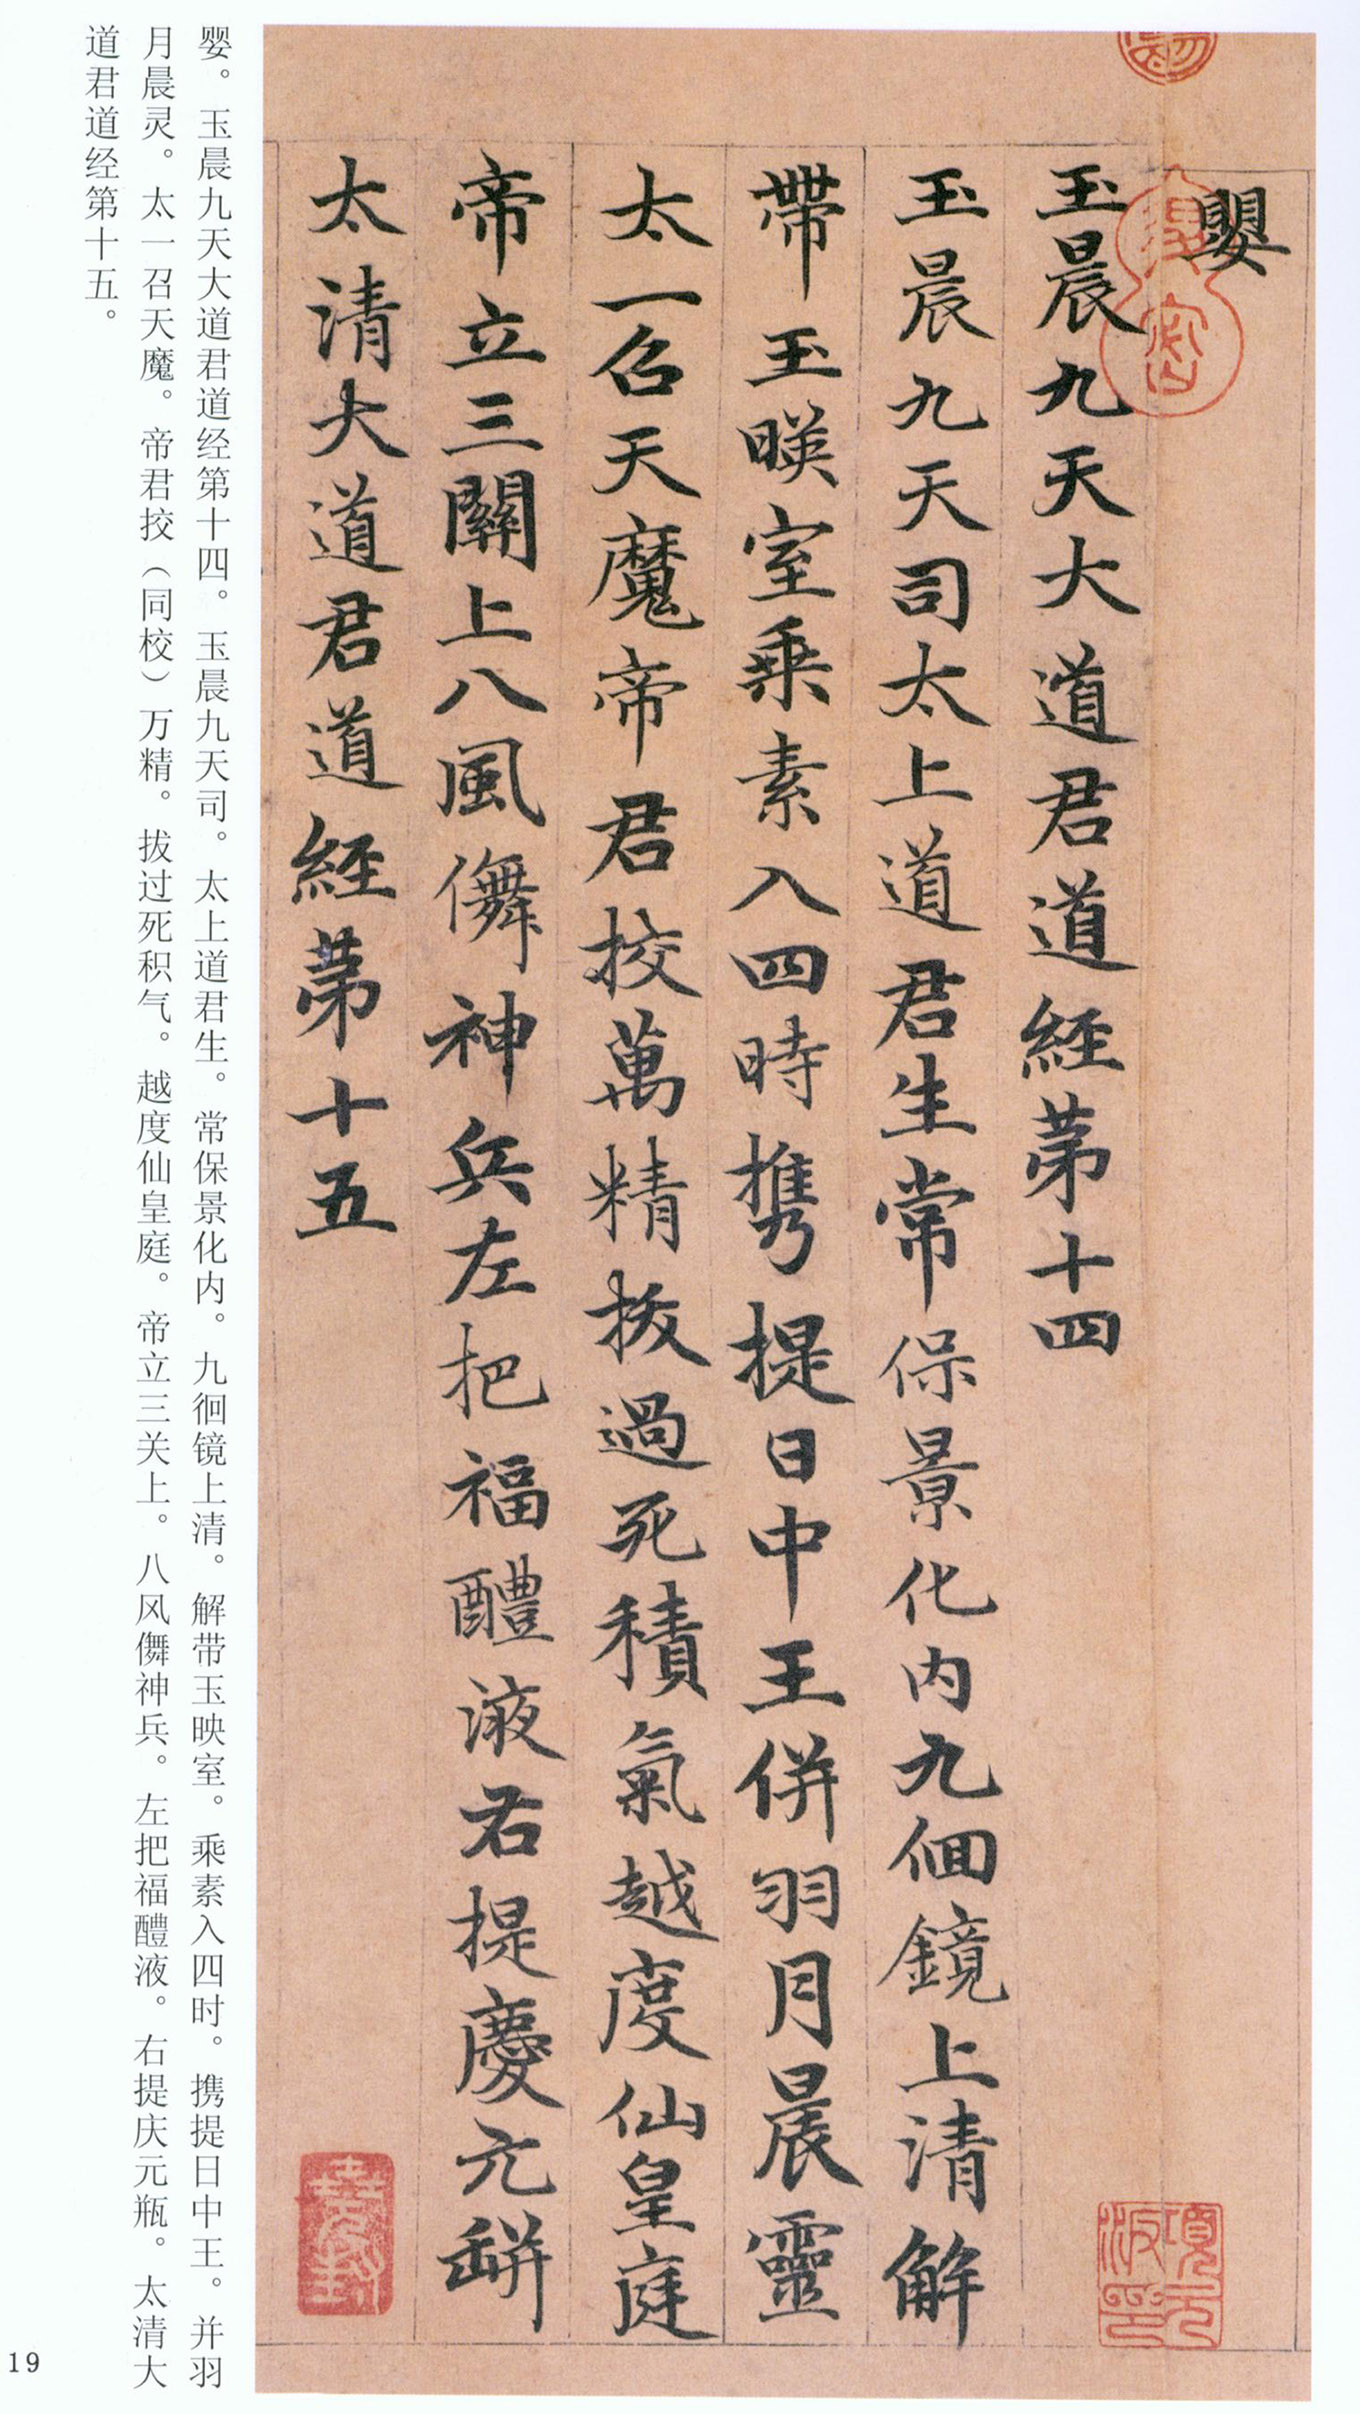 嬰
玉晨九天大道君道經苐十四
玉晨九天司太上道君生常保景化内九佪鏡上清解
帶玉暎室乗素入四時携提日中王併羽月晨靈
太一召天魔帝君挍萬精拔過死積氣越度仙皇庭
帝立三關上八風儛神兵左把福醴液右提慶元缾
太清大道君道經苐十五
婴。玉晨九天大道君道经第十四。玉晨九天司。太上道君生。常保景化内。九徊镜上清。解带玉映室。乘素入四时。携提日中王。并羽
月晨灵。太一召天魔。帝君挍（同校）万精。拔过死积气。越度仙皇庭。帝立三关上。八风儛神兵。左把福醴液。右提庆元瓶。太清大
道君道经第十五。
項元汴印
19